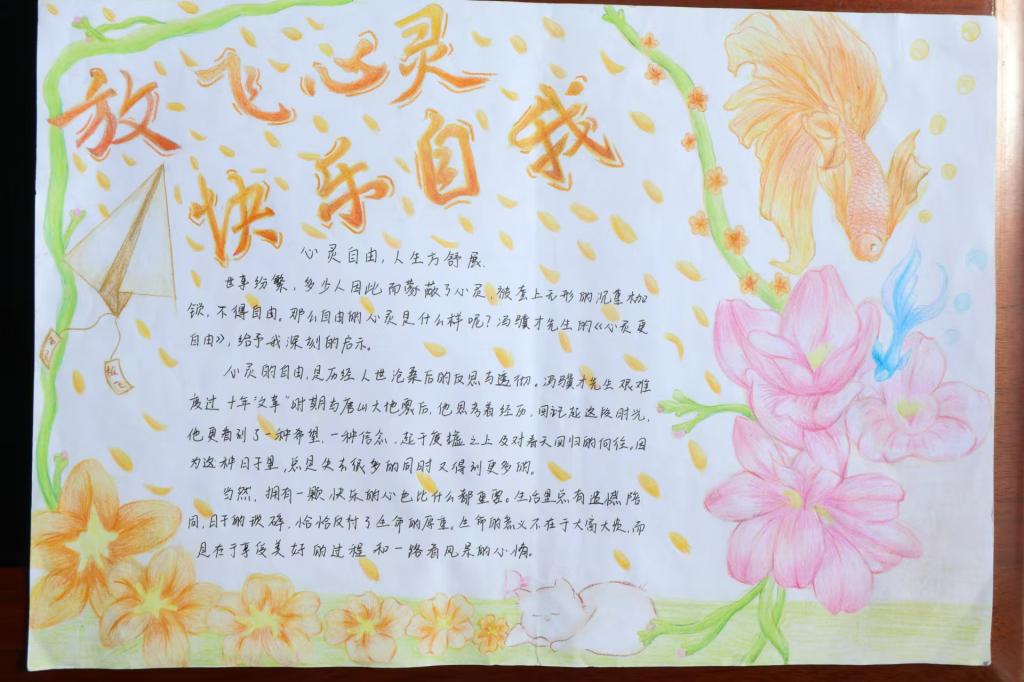 放飞心灵
快乐自我
心灵自由,人生方舒展.
世事纷繁,多少人因此而蒙蔽了心灵,被套上无形的沉重枷
锁,不得自由。那么自由的心灵是什么样呢?冯骥才先生的《心灵更
自由》,给予我深刻的启示。
心灵的自由,是历经人世沧桑后的反思与透彻。冯骥才先生艰难
度过十年"文革"时期与唐山大地震后,他思考着经历,回记起这段时光,
他更看到了一种希望、一种信念,起于废墟之上及对春天回归的向往。因
为这种日子里,总是失去很多的同时又得到更多的。
当然,拥有一颗快乐的心也比什么都重要。生活里总有遗憾陪
同,日子的琐碎,恰恰反衬了生命的厚重。生命的意义不在于大富大贵,而
是在于享受美好的过程和一路看风景的心情。
放飞